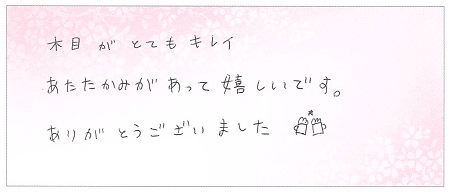 木目がとてもキレイ
あたたかみがあって嬉しいです。
ありがとうございました